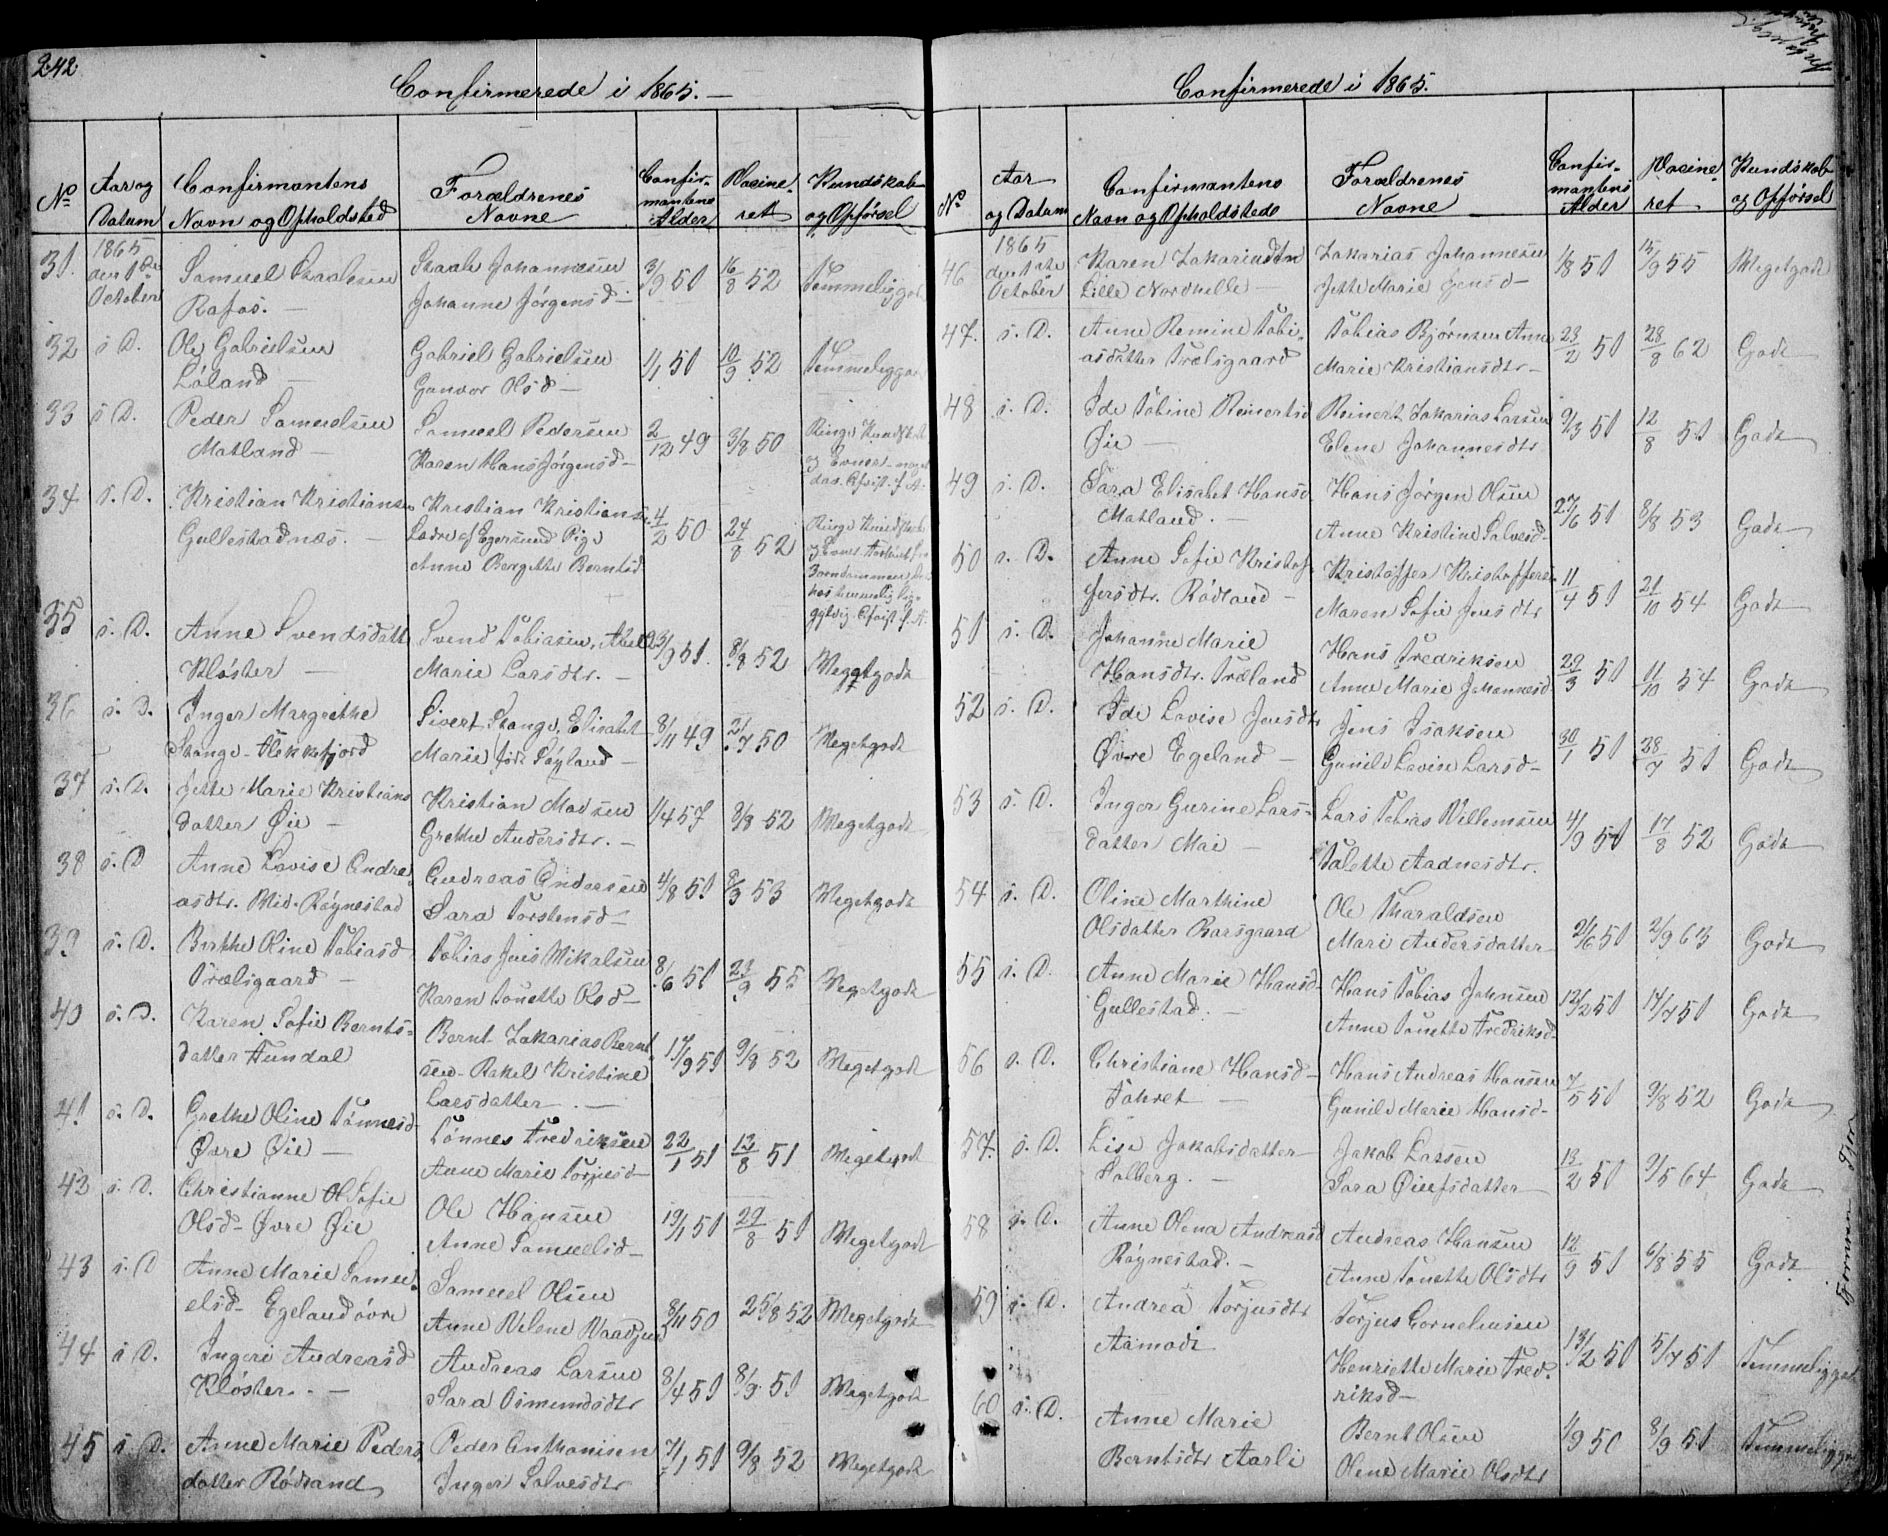 242
Confirmerede i 1865.
No
Aar og Datum
Confirmantens Navn og Opholdsted
Forældrenes Navne
Confirmantens Alder
Vacineret
Kundskab og Opførsel
31. 1865 den 1de October
Samuel Skaalesen
Rafos.
Johanne Jørgensd
3/9 50
16/8 52
Temmeliggodt
32 s. D.
Ole Gabrielsen
Løland
Gabriel Gabrielsen
Gunvor Olsd
1/1 50
10/9 52
Temmeliggodt
33 s. D.
Peder Samuelsen
Matland
Samuel Pedersen
Karen Hans Jørgensd
2/12 49
3/8 50
Ringe Kundskab
34 s. D.
Kristian Kristiansen
Gullestadnæs.
Kristian Kristiansen
Anne Bergitte Berntsd
4/2 50
24/8 52
35 s. D.
Anne Svendsdatt
Kloster
Svend Tobiasen,
Marie Larsdtr.
23/9 51.
8/8 52
Megetgodt
36 s. D.
Inger Margrethe
Stange - Flekkefjord
Sivert Stange, Elisabet
Marie
8/11 49
2/7 50
Megetgodt
37 s. D.
Jette Marie Kristians
datter Øie
Kristian Madsen
Grethe Andersdtr.
1/4 51
3/8 52
Megetgodt
38 s. D
Anne Lovise Andre
asdtr. Mid. Røynestad
Andreas Andersen
Sara Torstensd
4/8 51
8/9 53
Megetgodt
39 s. D.
Berthe Oline Tobiasd
Trælsgaard
Tobias Jens Mikalsen
Karen Tonette Olsd
8/6 51
23/9 55
Megetgodt
40 s. D.
Karen Sofie Bernts-
datter Fundal
Bernt Zakarias Bernt
sen - Rakel Kristine
Larsdatter.
17/9 51
9/8 52
Megetgodt
41 s. D.
Grethe Oline Tønnesd
Øvre Øie
Tønnes Fredriksen
Anne Marie Torjusd
22/1 51
13/8 51
Megetgodt
42 s. D.
Christianne Ol Sofie
Olsd - Øvre Øie
Ole Hansen
Anne Samuelsd
19/1 51
29/8 51
Megetgodt
43 s. D
Anne Marie Samu
elsd - Egeland øvre
Samuel Olsen
Anne Velene
8/11 50
25/8 52
Megetgodt
44 s. D.
Ingeri Andreasd
Kloster.
Andreas Larsen
Sara Osmundsdtr
8/4 51
8/9 51
Megetgodt
45 s. D.
Anne Marie Peders
datter Rødsand
Peder Anthonisen
Inger Salvesdtr
7/1 51
9/8 52
Megetgodt
Confirmerede i 1865.
No
Aar og Datum
Confirmantens Navn og Opholdsteds
Forældrenes Navne
Confirmantens Alder
Vacineret
Kundskab og Opførsel
46 1865 den 1ste October
Karen Zakariadtn
Lille Nordhelle
Zakarias Johannesen
Jette Marie Jensd
1/8 51
15/9 55
Megetgodt
47. s. D.
Anne Remine Tobi-
asdatter Trælsgaard
Tobias Bjørnsen Anne
Marie Kristiansdtr
23/2 51
28/8 62
Godt
48 s. D.
Ide Tobine Reinertsd
Øie
Reinert Zakarias Larsen
Elene Johannesdtr
9/3 51
12/8 51
Godt
49 s. D.
Sara Elisabet Hansd
Matland.
Hans Jørgen Olsen
Anne Kristine Salvesd
27/6 51
8/8 53
Godt
50 s. D.
Anne Sofie Kristof
fersdtr. Rødland
Kristoffer Kristoffersen
Maren Sofie Jensdtr
11/4 51
21/10 54
Godt
51 s. D.
Johanne Marie
Hansdtr. Træland
Hans Fredriksen
Anne Marie Johannesd
29/3 51
11/10 54
Godt
52 s. D.
Ide Lovise Jensdtr
Øvre Egeland
Jens Isaksen
Gunild Lovise Larsd
30/1 51
28/7 51
Godt
53 s. D.
Inger Gurine Lars-
datter Mai
Lars Tobias Villemsen
Talette Aadnesdtr.
4/9 51
17/8 52
Godt
54 s. D.
Oline Marthine
Olsdatter Barsgaard
Ole Tharaldsen
Mari Andersdatter
2/6 51
2/9 63
Godt
55 s. D.
Anne Marie Hansd
Gullestad.
Hans Tobias Johnsen
Anne Tonette Fredriksd
12/2 51
14/7 51
Godt
56 s. D.
Christiane Hansd
Hans Andreas Hansen
Gunild Marie Hansd
7/5 51
9/8 52
Godt
57. s. D.
Lise Jakobsdatter
Solberg.
Jakob Lassen
Sara
13/2 51
9/5 64
Godt
58 s. D.
Anne Olena Andreasd
Røynestad.
Andreas Hansen
Anne Tonette Olsdtr
12/9 51
6/8 55
Godt
59 s. D.
Andrea Torjusdtr
Aamodt
Torjus Corneliusen
Henriette Marie Fred-
riksd
13/2 51
5/7 51
Temmeliggodt
60 s. D.
Anne Marie
Berntsdtr Aarli
Bernt Olsen
Olene Marie Olsdtr
1/9 50
8/9 51
Temmeliggodt